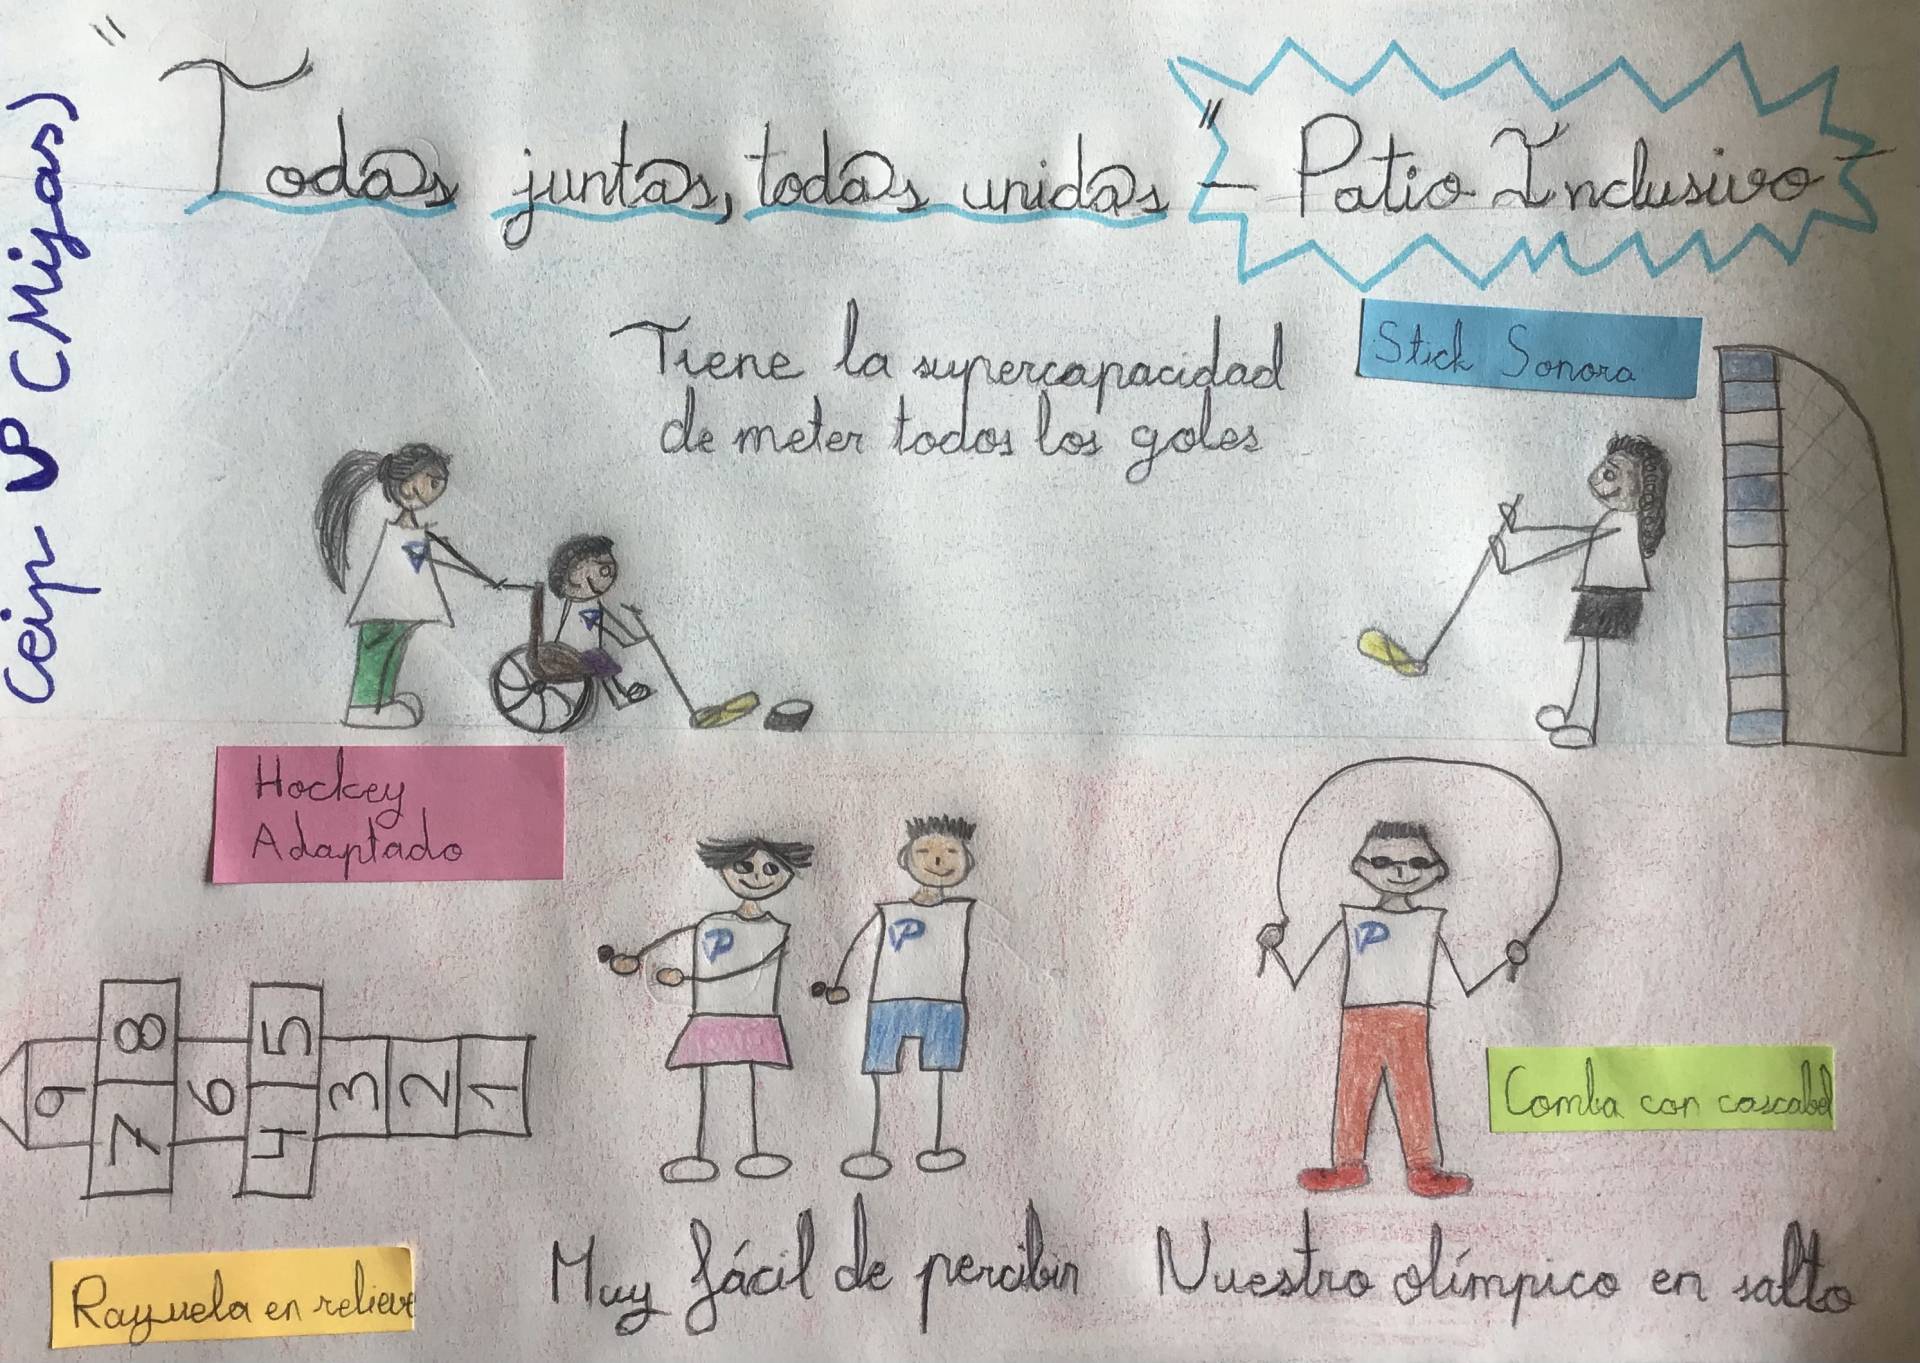 "Tod@s junt@s, tod@s unid@s" - Patio Inclusivo -
Ceip VP (Mijas)
Tiene la supercapacidad
de meter todos los goles
Stick Sonora
Hockey
Adaptado
P
P
P
9
8
7
6
5
4
3
2
1
Comba con cascabel
Rayuela en relieve
Muy fácil de percibir
Nuestro olímpico en salto